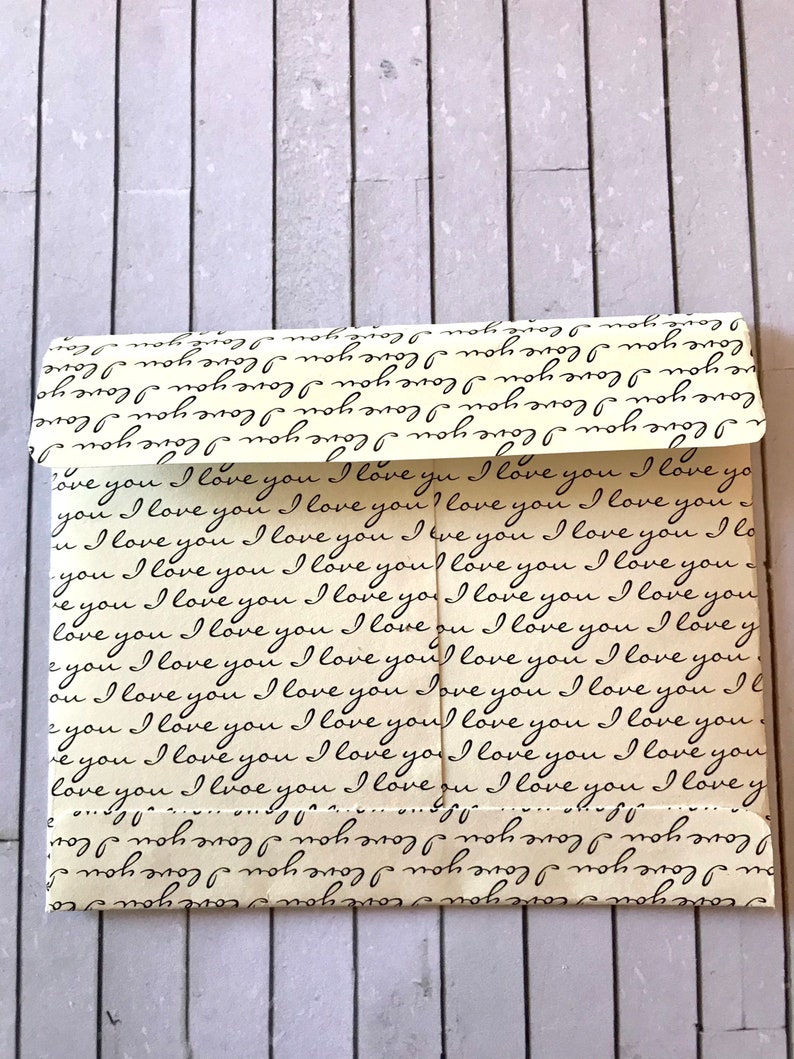 I love you I love you I love you I love you
I love you I love you I love you I love you
I love you I love you I love you I love you
I love you I love you I love you I love you
I love you I love you I love you I love you
ove you I love you I love y u I love you I love yo
you I love you I love you love you I love you I
u I love you I love you I ve you I love you I lo
you I love you I love you I love you I love you
e you I love you I love you I love you I love you
love you I love you I love u I love you I love y
you I love you I love you I love you I love you
ou I love you I love you I ove you I love you I l
you I love you I love you I love you I love you
e you I love you I love you I love you I love you
love you I lvoe you I love you I love you I love y
I love you I love you I love you I love you
I love you I love you I love you I love you
I love you I love you I love you I love you